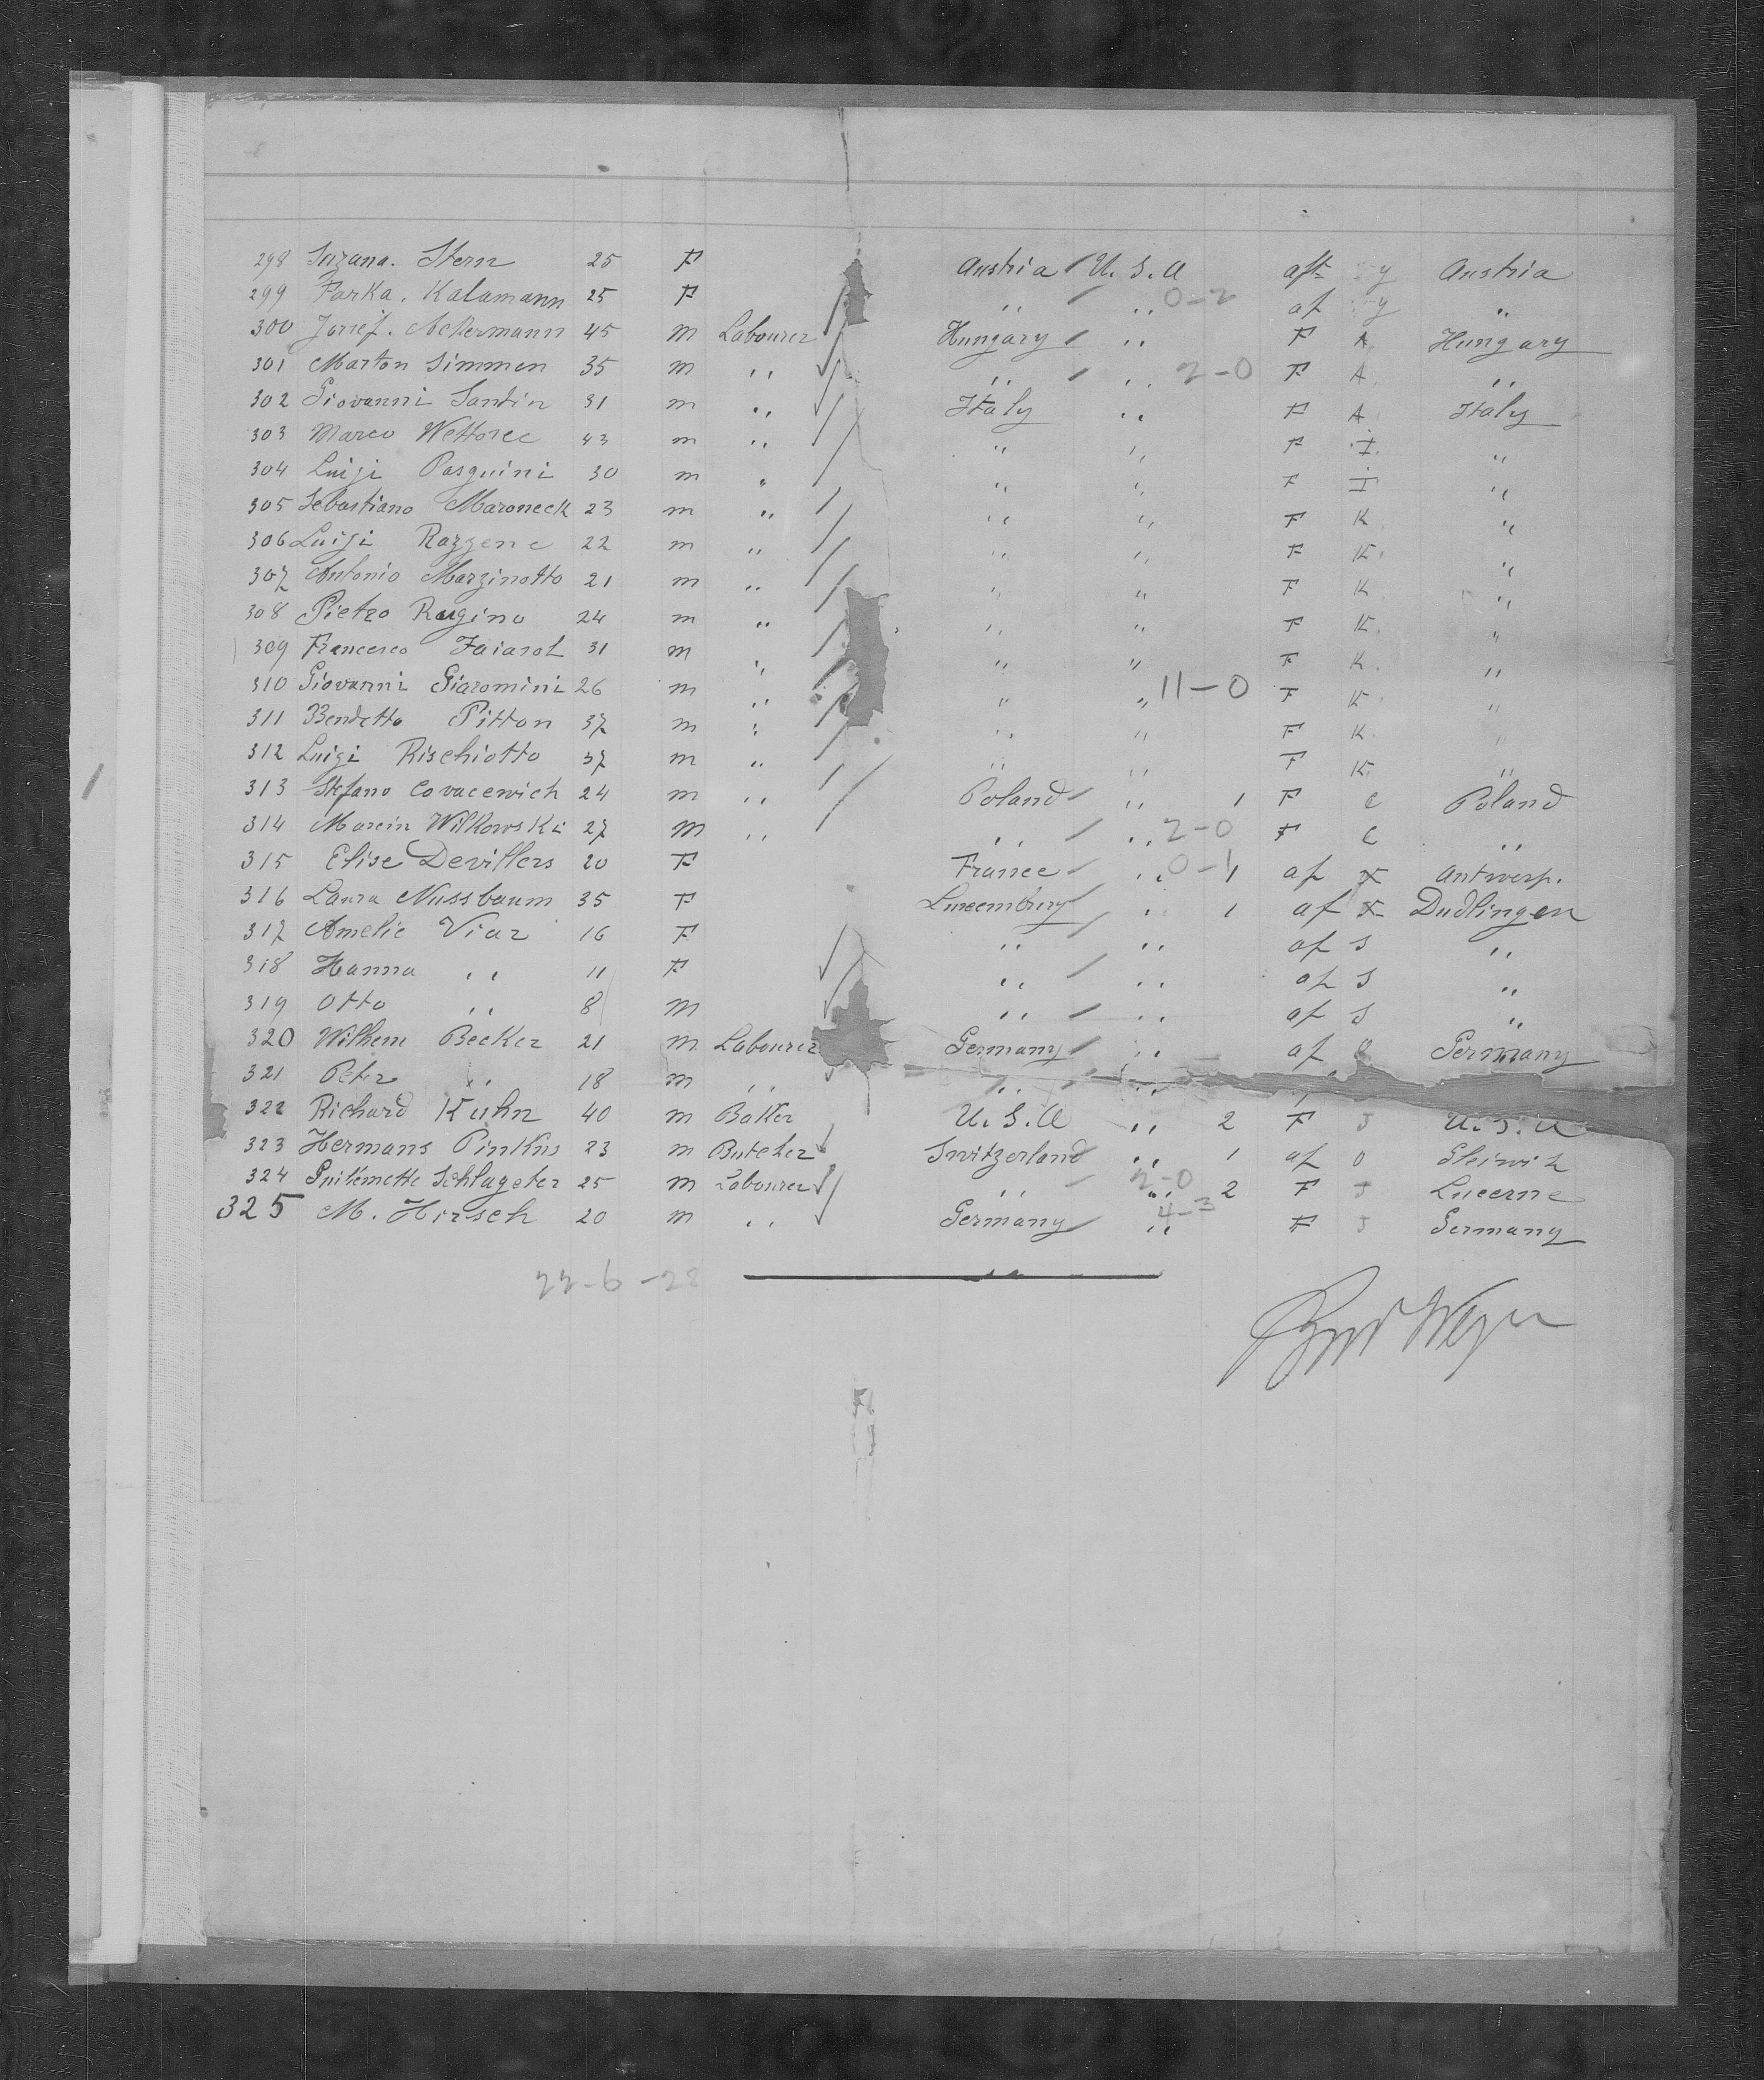 298 Suzana. Stern 25 F Austria U. S. A aft y Austria
299 Farka. Kalamann 25 F ,, ,, 0-2 af y ,,
300 Josief. Ackermann 45 m Labourer Hungary ,, F A. Hungary
301 Marton Simmen 35 m ,, ,, ,, 2-0 F A. ,,
302 Giovanni Santin 31 m ,, Italy ,, F A. Italy
303 Marco Wettorec 43 m ,, ,, ,, F I. ,,
304 Luigi Pasquini 30 m ,, ,, ,, F I ,,
305 Sebastiano Maroneck 23 m ,, ,, ,, F K. ,,
306 Luigi Razzene 22 m ,, ,, ,, F K. ,,
307 Antonio Marzinotto 21 m ,, ,, ,, F K. ,,
308 Pietro Rugino 24 m ,, ,, ,, F K. ,,
309 Francesco Faiarol 31 m ,, ,, ,, F K. ,,
310 Giovanni Giaromini 26 m ,, ,, ,, 11-0 F K. ,,
311 Bendetto Pitton 37 m ,, ,, ,, F K. ,,
312 Luigi Rischiotto 37 m ,, ,, ,, F K. ,,
313 Stefano Covacewich 24 m ,, Poland ,, 1 F C Poland
314 Marcin Wilkowski 27 m ,, ,, ,, 2-0 F C ,,
315 Elise Devillers 20 F France ,, 0-1 af X Antwerp.
316 Laura Nussbaum 35 F Luxemburg ,, 1 af X Dudlingen
317 Amelie Viar 16 F ,, ,, af S ,,
318 Hanna ,, 11 F ,, ,, af S ,,
319 Otto ,, 8 m ,, ,, af S ,,
320 Wilhem Becker 21 m Labourer Germany ,, af Germany
321 Peter ,, 18 m ,, ,, ,,
322 Richard Kuhn 40 m Baker U. S. A ,, 2 F J U. S. A
323 Hermans Pinkus 23 m Butcher Switzerland ,, 1 af O Gleiwitz
324 Guillemette Schlageter 25 m Labourer ,, 2-0 ,, 2 F J Lucerne
325 M. Hirsch 20 m ,, Germany 4-3 ,, F J Germany
22-6-28